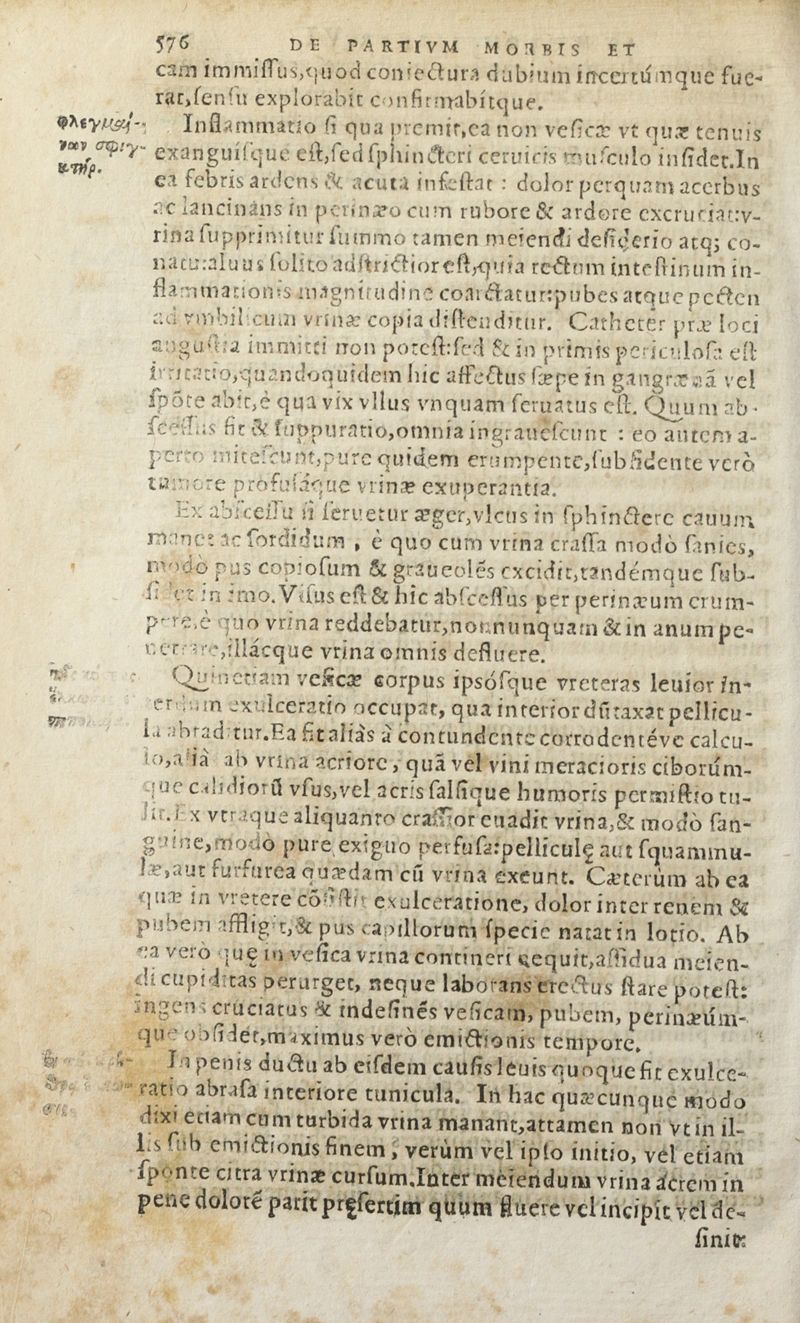 576 DE PARTIVM MORBIS ET
cam immissus,quod coniectura dubium incertúmque fue-
rat,sensu explorabit confirmabítque.
Inflammatio si qua premit,ea non vesicæ vt quæ tenuis
exanguisque est,sed sphincteri ceruicis musculo insidet.In
ea febris ardens & acuta infestat : dolor perquam acerbus
ac lancinans in perinæo cum rubore & ardore excruciat:v-
rina supprimitur summo tamen meiendi desiderio atq; co-
natu:aluus solito adstrictior est,quia rectum intestinum in-
flammationis magnitudine coarctatur:pubes atque pecten
ad vmbilicum vrinæ copia distenditur. Catheter præ loci
angustia immitti non potest:sed & in primis periculosa est
irritatio,quandoquidem hic affectus sæpe in gangrænã vel
spõte abit,è qua vix vllus vnquam seruatus est. Quum ab-
scessus fit & suppuratio,omnia ingrauescunt : eo autem a-
perto mitescunt,pure quidem erumpente,subsidente verò
tumore profusáque vrinæ exuperantia.
Ex abscessu si seruetur æger,vlcus in sphinctere cauum
manet ac sordidum , è quo cum vrina crassa modò sanies,
modò pus copiosum & graueolẽs excidit,tandémque sub-
sidet in imo. Visus est & hic abscessus per perinæum erum-
pere,è quo vrina reddebatur,nonnunquam & in anum pe-
netrare,illácque vrina omnis defluere.
Quinetiam vesicæ corpus ipsósque vreteras leuior in-
terdum exulceratio occupat, qua interior dũtaxat pellicu-
la abraditur.Ea fit aliàs à contundente corrodentéve calcu-
lo,alià ab vrina acriore, quã vel vini meracioris ciborúm-
que calidiorũ vsus,vel acris salsique humoris permistio tu-
lit.Ex vtraque aliquanto crassior euadit vrina,& modò san-
guine,modò pure exiguo perfusa:pelliculę aut squammu-
læ,aut furfurea quædam cũ vrina exeunt. Cæterùm ab ea
quæ in vretere exulceratione, dolor inter renem &
pubem affligit,& pus capillorum specie natat in lotio. Ab
ea verò quę in vesica vrina contineri nequit,assidua meien-
di cupiditas perurget, neque laborans erectus stare potest:
ingens cruciatus & indefinẽs vesicam, pubem, perinæúm-
que obsidet,maximus verò emictionis tempore.
In penis ductu ab eisdem causis leuis quoque fit exulce-
ratio abrasa interiore tunicula. In hac quæcunque modo
dixi etiam cum turbida vrina manant,attamen non vt in il-
lis sub emictionis finem, verùm vel ipso initio, vel etiam
sponte citra vrinæ cursum.Inter meiendum vrina acrem in
pene dolorẽ parit pręsertim quùm fluere vel incipit vel de-
finit: